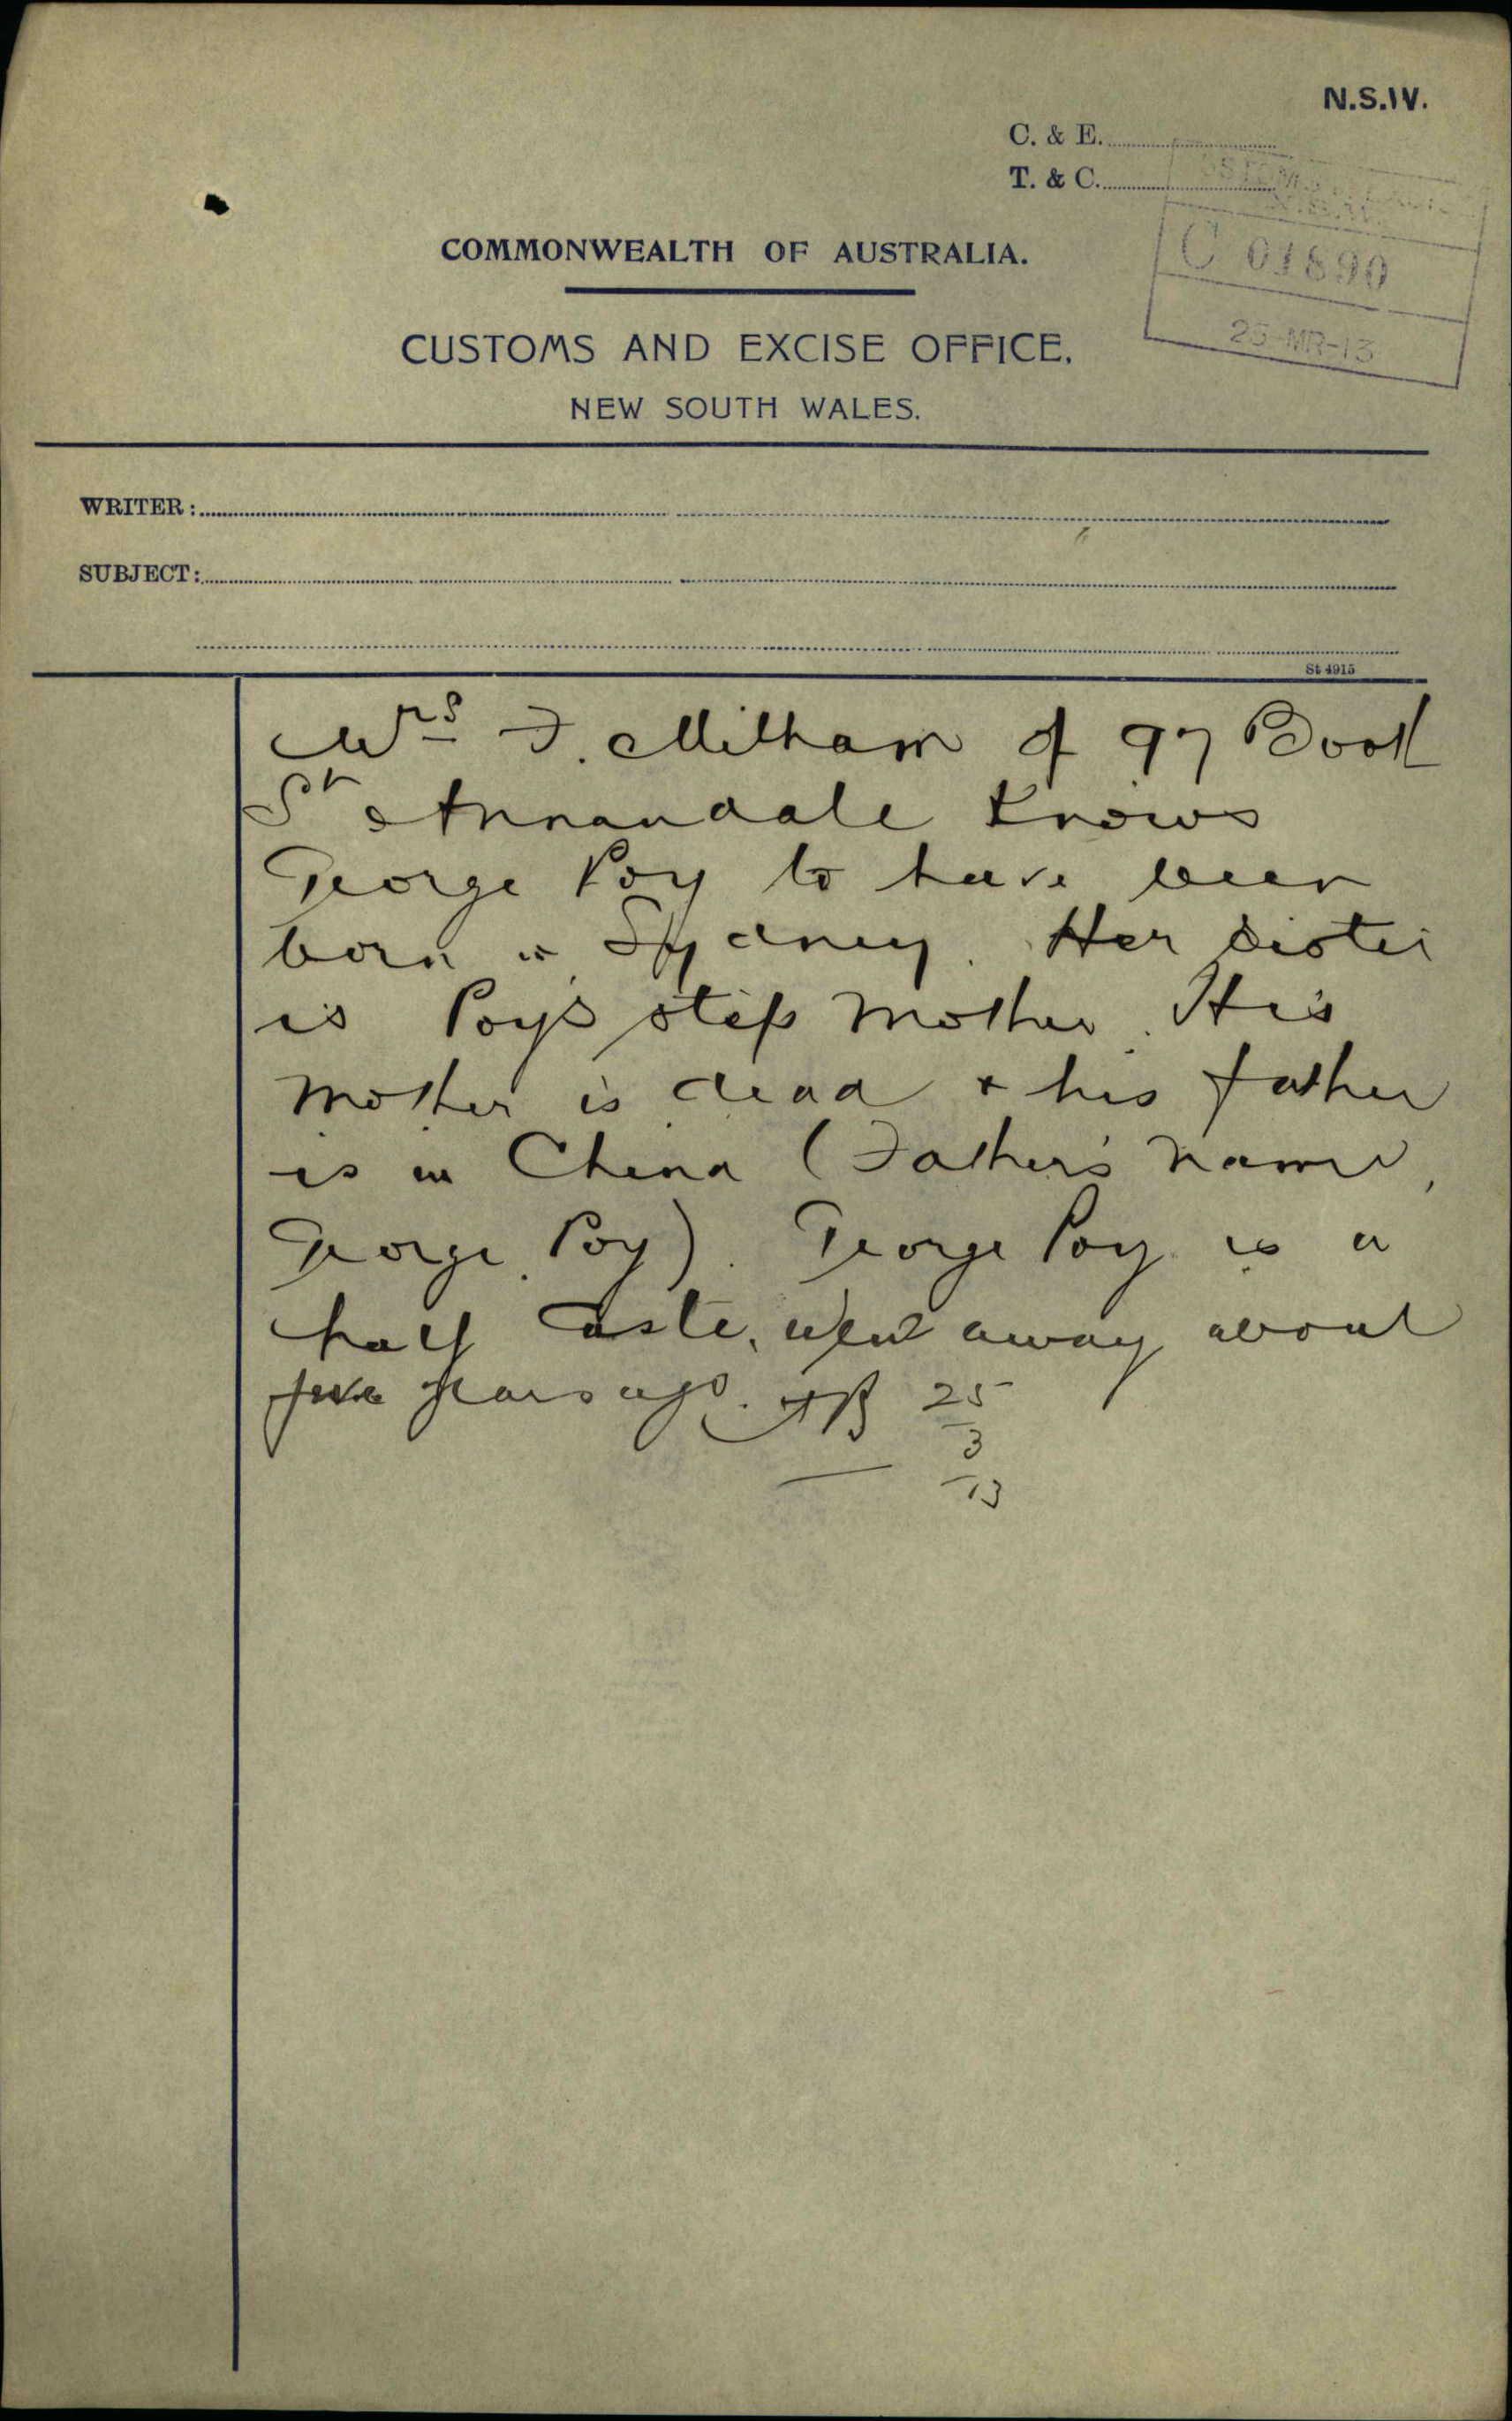 N.S.W.
C. & E.
T. & C.
C 01890
25 MR-13
COMMONWEALTH OF AUSTRALIA.
CUSTOMS AND EXCISE OFFICE,
NEW SOUTH WALES.
WRITER:
SUBJECT:
St 4915
Mrs F. Mitham of 97 Booth
St Annandale knows
George Poy to have been
born in Sydney. Her sister
is Poy's step mother. His
mother is dead & his father
is in China (Father's name,
George Poy). George Poy is a
half caste, went away about
five years ago. 25
3
13